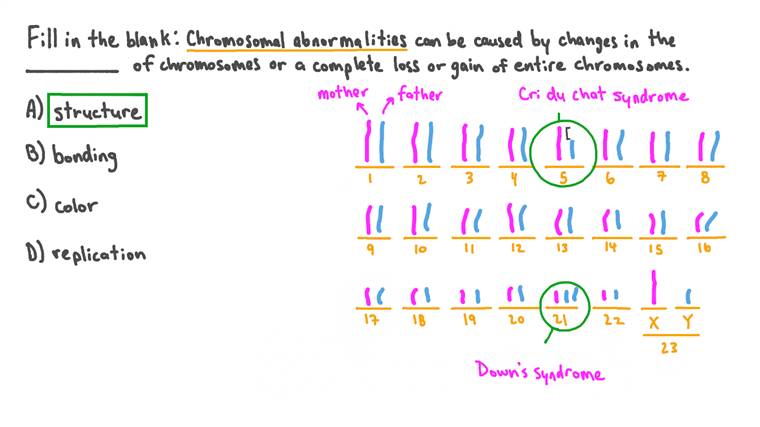 Fill in the blank: Chromosomal abnormalities can be caused by changes in the
__________ of chromosomes or a complete loss or gain of entire chromosomes.
A) structure
B) bonding
C) color
D) replication
mother father
Cri du chat syndrome
1 2 3 4 5 6 7 8
9 10 11 12 13 14 15 16
17 18 19 20 21 22 X Y
23
Down's syndrome